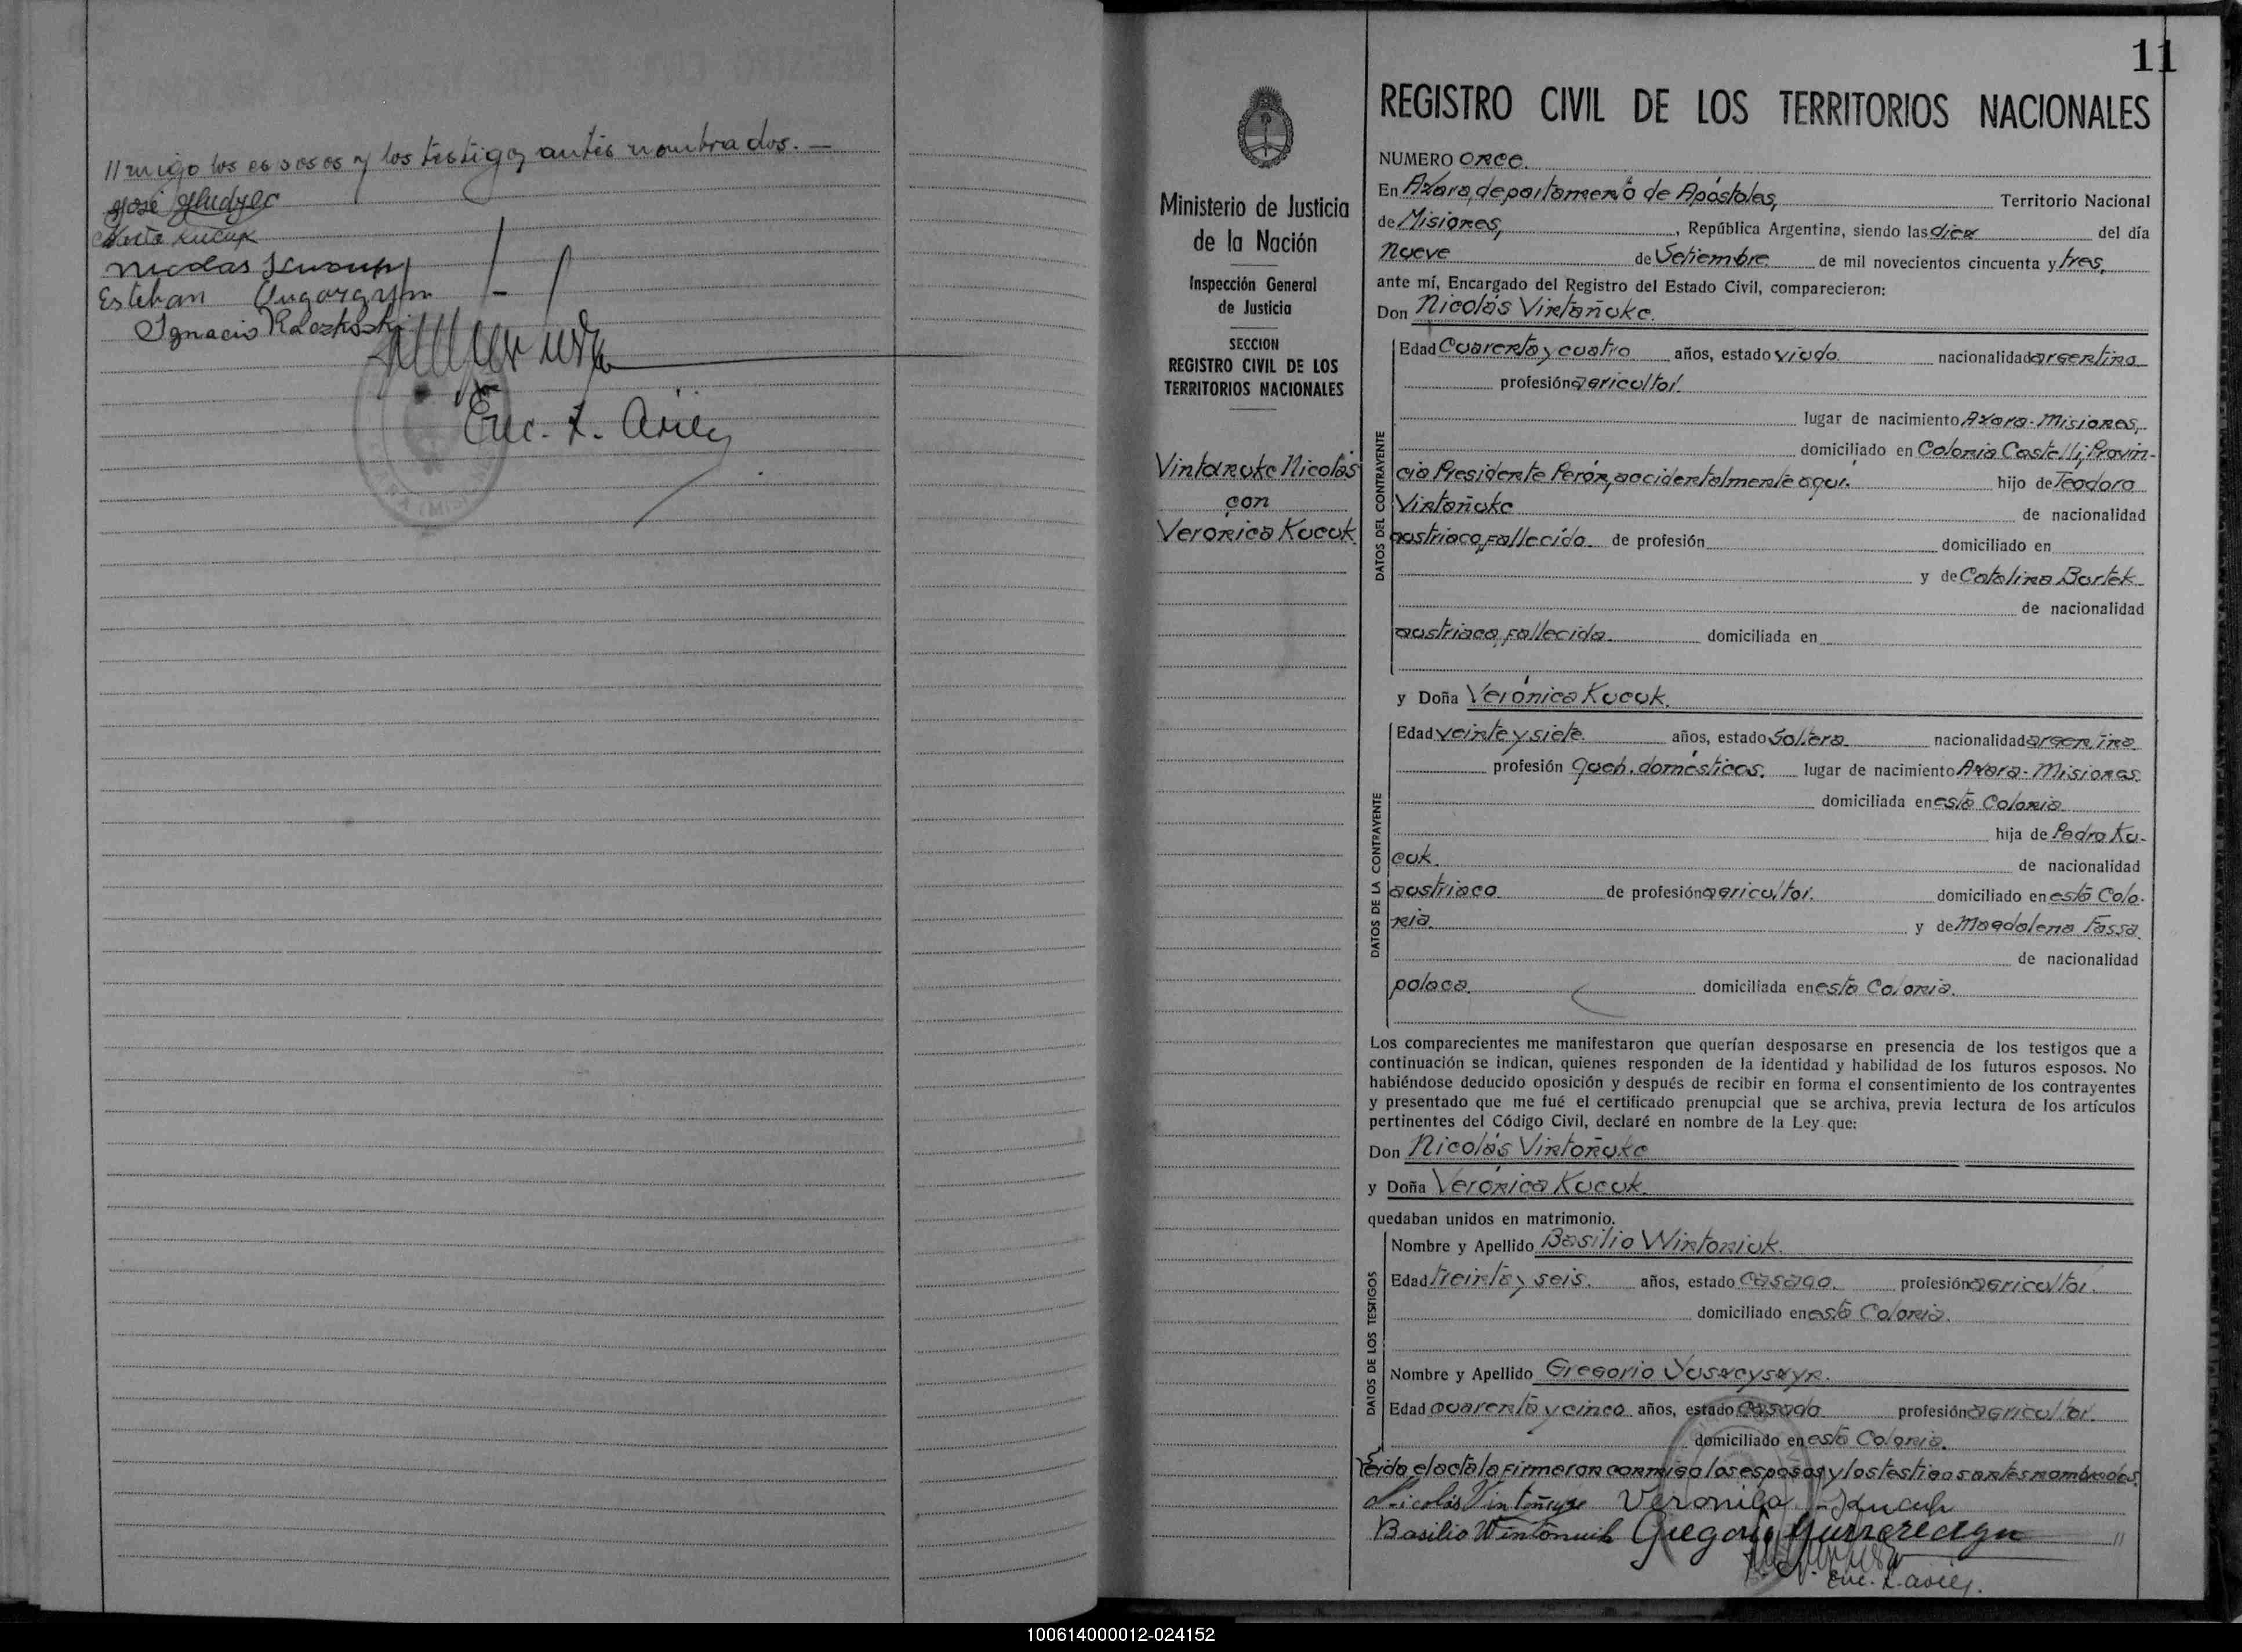 //migo los esposos y los testigos antes nombrados. —
José
Nicolas
Esteban
Ignacio
Enc.
11
REGISTRO CIVIL DE LOS TERRITORIOS NACIONALES
Ministerio de Justicia
de la Nación
Inspección General
de Justicia
SECCION
REGISTRO CIVIL DE LOS
TERRITORIOS NACIONALES
Vintañuke Nicolás
con
Verónica Kucuk.
NUMERO once.
En Azara, departamento de Apóstoles, Territorio Nacional
de Misiones, , República Argentina, siendo las diez del día
nueve de Setiembre de mil novecientos cincuenta y tres,
ante mí, Encargado del Registro del Estado Civil, comparecieron:
Don Nicolás Vintañuke.
DATOS DEL CONTRAYENTE
Edad Cuarenta y cuatro años, estado viudo nacionalidad argentina
profesión agricultor.
lugar de nacimiento Azara-Misiones,
domiciliado en Colonia Castelli, Provin-
cia Presidente Perón, accidentalmente aquí. hijo de Teodoro
Vintañuke de nacionalidad
austriaco, fallecido. de profesión domiciliado en
y de Catalina Bartek
de nacionalidad
austriaca, fallecida. domiciliada en
y Doña Verónica Kucuk.
DATOS DE LA CONTRAYENTE
Edad veinte y siete. años, estado Soltera nacionalidad argentina
profesión queh. domésticos. lugar de nacimiento Azara-Misiones.
domiciliada en esta Colonia
hija de Pedro Ku-
cuk. de nacionalidad
austriaco de profesión agricultor. domiciliado en esta Colo-
nia. y de Magdalena Fassa
de nacionalidad
polaca. domiciliada en esta Colonia.
Los comparecientes me manifestaron que querían desposarse en presencia de los testigos que a
continuación se indican, quienes responden de la identidad y habilidad de los futuros esposos. No
habiéndose deducido oposición y después de recibir en forma el consentimiento de los contrayentes
y presentado que me fué el certificado prenupcial que se archiva, previa lectura de los artículos
pertinentes del Código Civil, declaré en nombre de la Ley que:
Don Nicolás Vintoñuke
y Doña Verónica Kucuk.
quedaban unidos en matrimonio.
DATOS DE LOS TESTIGOS
Nombre y Apellido Basilio Wintoniuk.
Edad treinta y seis. años, estado casado. profesión agricultor.
domiciliado en esta Colonia.
Nombre y Apellido Gregorio Juszcyszyn.
Edad cuarenta y cinco años, estado casado profesión agricultor.
domiciliado en esta Colonia.
Leida el acta la firmaron conmigo los esposos y los testigos antes nombrados.
Nicolás Veronica
Basilio Wintoniuk Gregorio //
Enc.
100614000012-024152